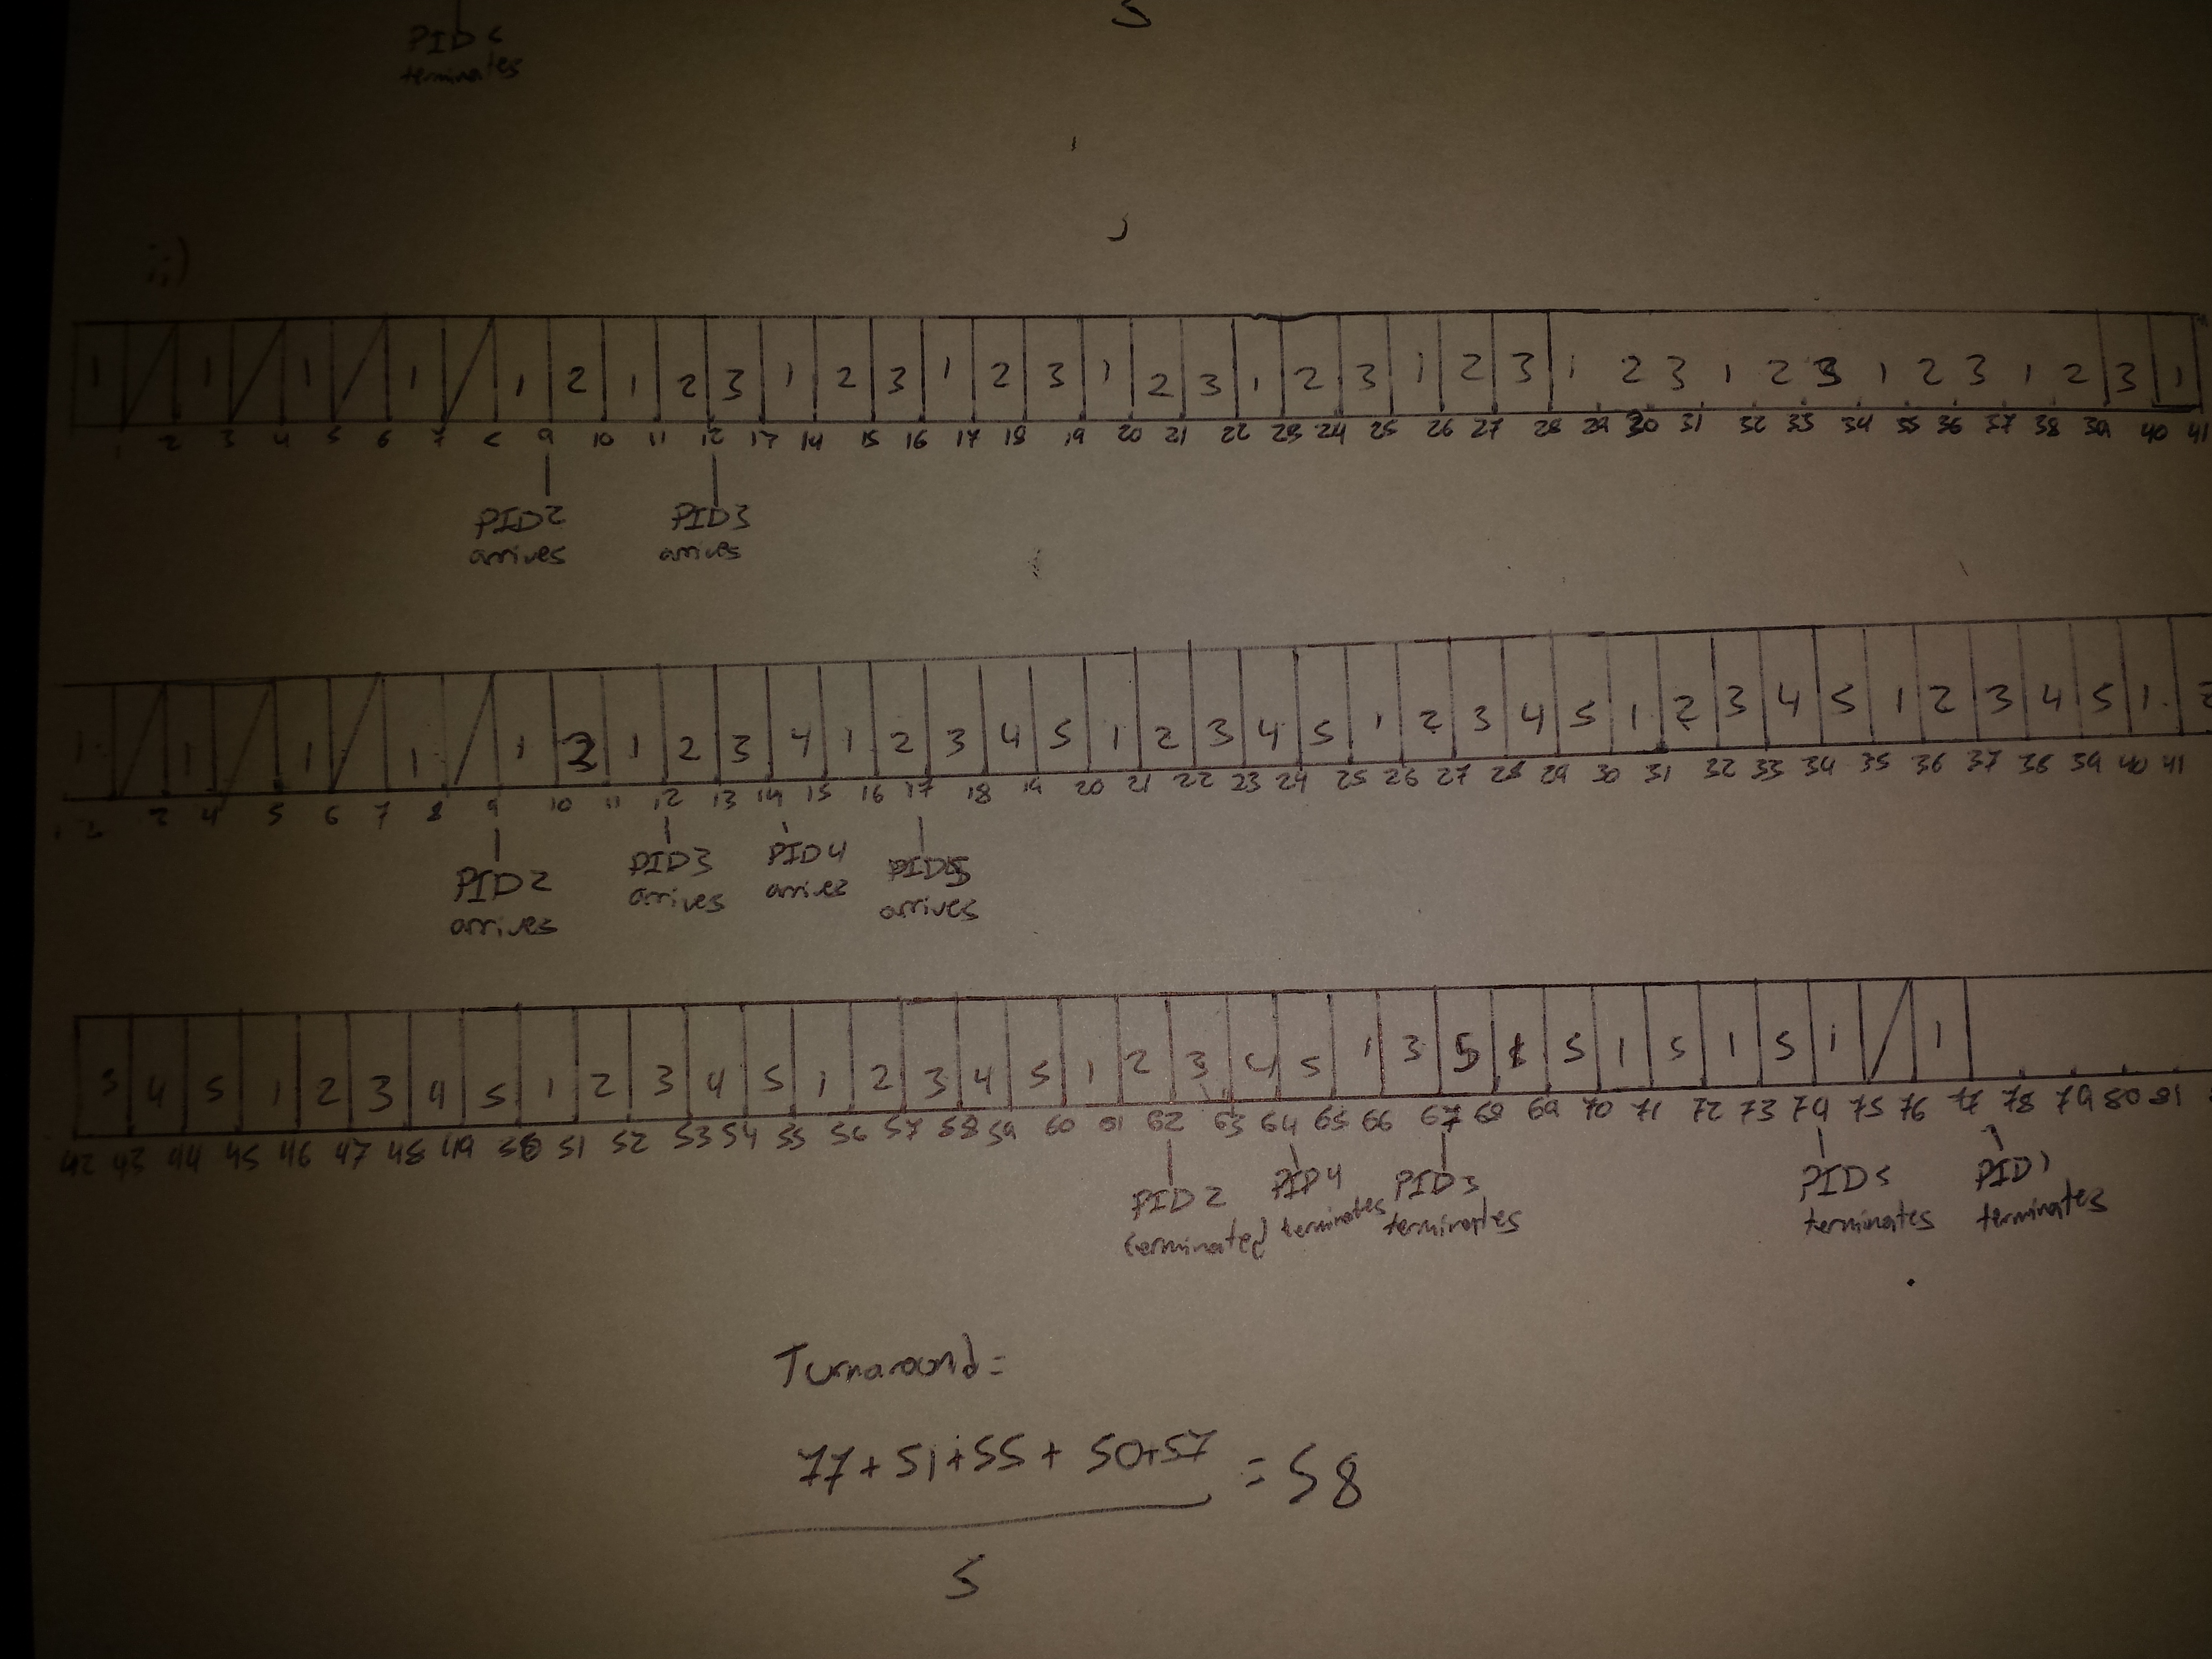 PID
terminates
5
ii)
1 1 1 1 1 2 1 2 3 1 2 3 1 2 3 1 2 3 1 2 3 1 2 3 1 2 3 1 2 3 1 2 3 1 2 3 1
1 2 3 4 5 6 7 8 9 10 11 12 13 14 15 16 17 18 19 20 21 22 23 24 25 26 27 28 29 30 31 32 33 34 35 36 37 38 39 40 41
PID2 PID3
arrives arrives
1 1 1 1 1 2 1 2 3 4 1 2 3 4 5 1 2 3 4 5 1 2 3 4 5 1 2 3 4 5 1 2 3 4 5 1 2
1 2 3 4 5 6 7 8 9 10 11 12 13 14 15 16 17 18 19 20 21 22 23 24 25 26 27 28 29 30 31 32 33 34 35 36 37 38 39 40 41
PID2 PID3 PID4 PID5
arrives arrives arrives arrives
3 4 5 1 2 3 4 5 1 2 3 4 5 1 2 3 4 5 1 2 3 4 5 1 3 5 1 5 1 5 1 5 1 1
42 43 44 45 46 47 48 49 50 51 52 53 54 55 56 57 58 59 60 61 62 63 64 65 66 67 68 69 70 71 72 73 74 75 76 77 78 79 80 81
PID2 PID4 PID3 PID5 PID1
terminated terminates terminates terminates terminates
Turnaround=
77+51+55+50+57 = 58
5